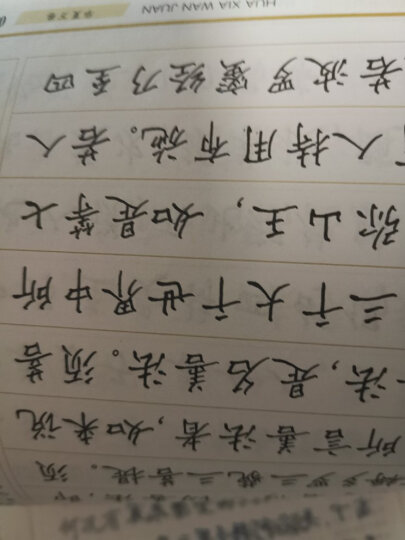 多罗三藐三菩提。须
所言善法者,如来说
法,是名善法。须菩
三千大千世界中所
弥山王,如是等七
人持用布施。若人
若波罗蜜经乃至四
华夏万卷
HUA XIA WAN JUAN